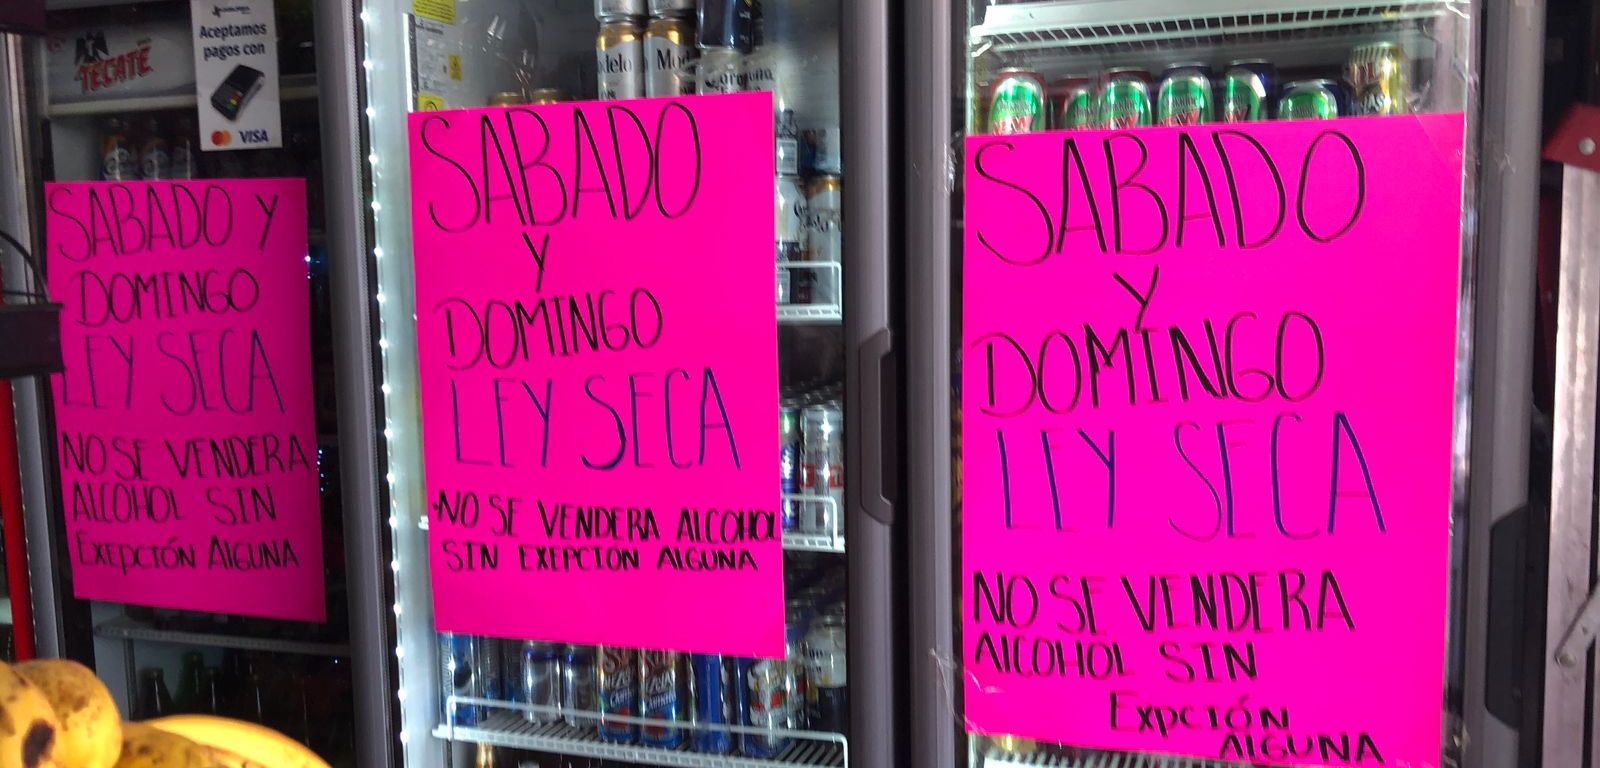 TECATE
Aceptamos
pagos con
VISA
SABADO Y
DOMINGO
LEY SECA
NO SE VENDERA
ALCOHOL SIN
EXEPCIÓN ALGUNA
Modelo
SABADO
Y
DOMINGO
LEY SECA
NO SE VENDERA ALCOHOL
SIN EXEPCIÓN ALGUNA
SABADO
Y
DOMINGO
LEY SECA
NO SE VENDERA
ALCOHOL SIN
EXPCIÓN
ALGUNA